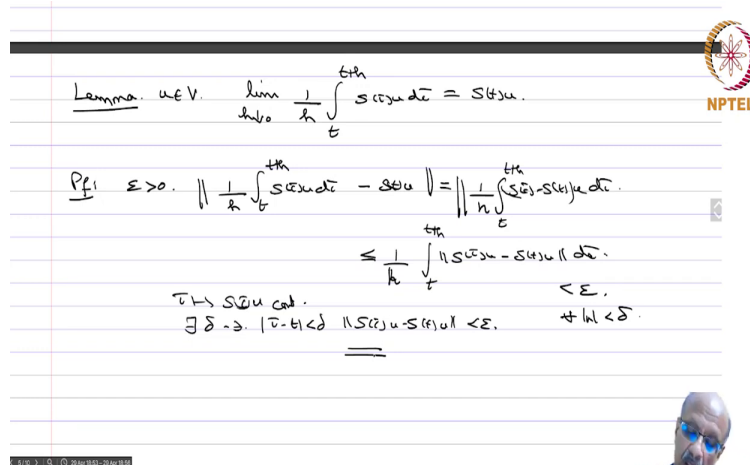 Lemma. u∈V. lim_{h↓0} 1/h ∫_t^{t+h} S(τ)u dτ = S(t)u.
NPTEL
Pf: ε>0. ‖ 1/h ∫_t^{t+h} S(τ)u dτ - S(t)u ‖ = ‖ 1/h ∫_t^{t+h} (S(τ)-S(t))u dτ.
≤ 1/h ∫_t^{t+h} ‖S(τ)u - S(t)u‖ dτ.
< ε.
τ ↦ S(τ)u cont.
∀ |h| < δ.
∃ δ ∋. |τ-t|<δ ‖S(τ)u-S(t)u‖ < ε.
5/10 29 Apr 18:53 - 29 Apr 18:56